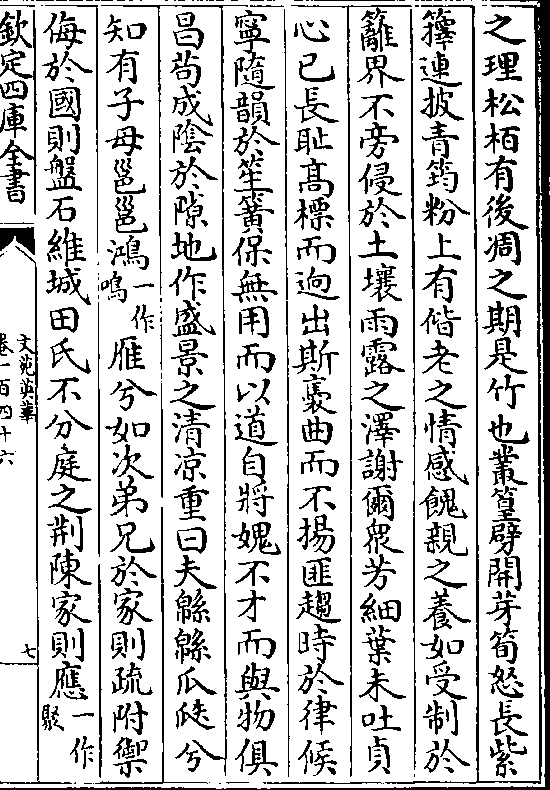 之理松栢有後凋之期是竹也叢篁劈開芽筍怒長紫
籜連披青筠粉上有偕老之情感餽親之養如受制於
籬界不旁侵於土壤雨露之澤謝爾衆芳細葉未吐貞
心已長耻髙標而逈出斯裹曲而不揚匪趨時於律候
寜隨韻於笙簧保無用而以道自將媿不才而與物俱
昌茍成陰於隙地作盛景之清凉重曰夫緜緜瓜瓞兮
知有子母邕邕鴻一作鳴雁兮如次弟兄於家則疏附禦
侮於國則盤石維城田氏不分庭之荆陳家則應一作聚
欽定四庫全書
文苑英華
卷一百四十六
七